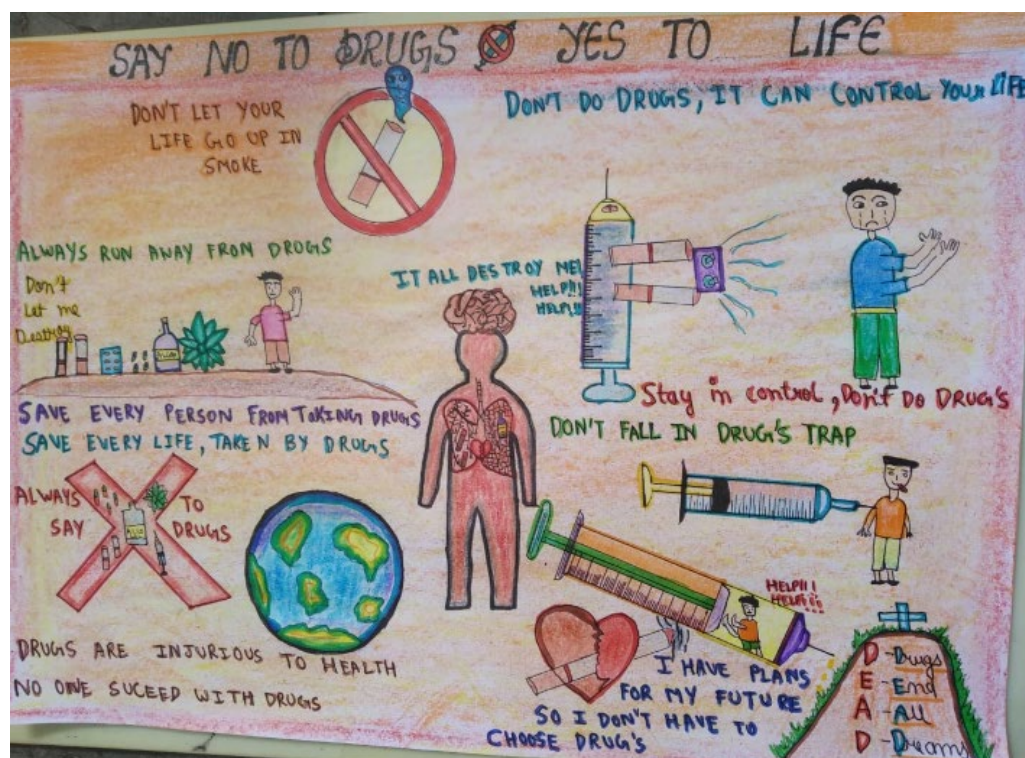 SAY NO TO DRUGS YES TO LIFE
DON'T LET YOUR
LIFE GO UP IN
SMOKE
DON'T DO DRUGS, IT CAN CONTROL YOUR LIFE
ALWAYS RUN AWAY FROM DRUGS
Don't
Let me
Destroy
IT ALL DESTROY ME!
HELP!!!
HELP!!!
Stay in control, Don't Do DRUG'S
SAVE EVERY PERSON FROM TAKING DRUGS
SAVE EVERY LIFE, TAKEN BY DRUGS
DON'T FALL IN DRUG'S TRAP
ALWAYS
SAY
TO
DRUGS
HELP!!!
HELP!!!
DRUGS ARE INJURIOUS TO HEALTH
NO ONE SUCEED WITH DRUGS
I HAVE PLANS
FOR MY FUTURE
SO I DON'T HAVE TO
CHOOSE DRUG'S
D - Drugs
E - End
A - All
D - Dreams